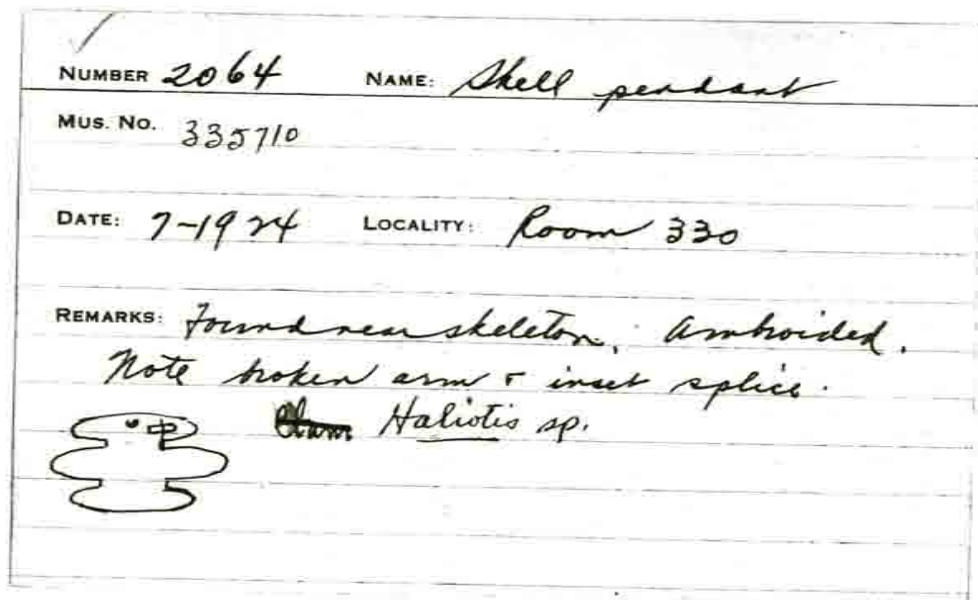 NUMBER 2064 NAME: Shell pendant
MUS. NO. 335710
DATE: 7-1924 LOCALITY: Room 330
REMARKS: Found near skeleton. Ambroided.
Note broken arm & inset splice.
Clam Haliotis sp.